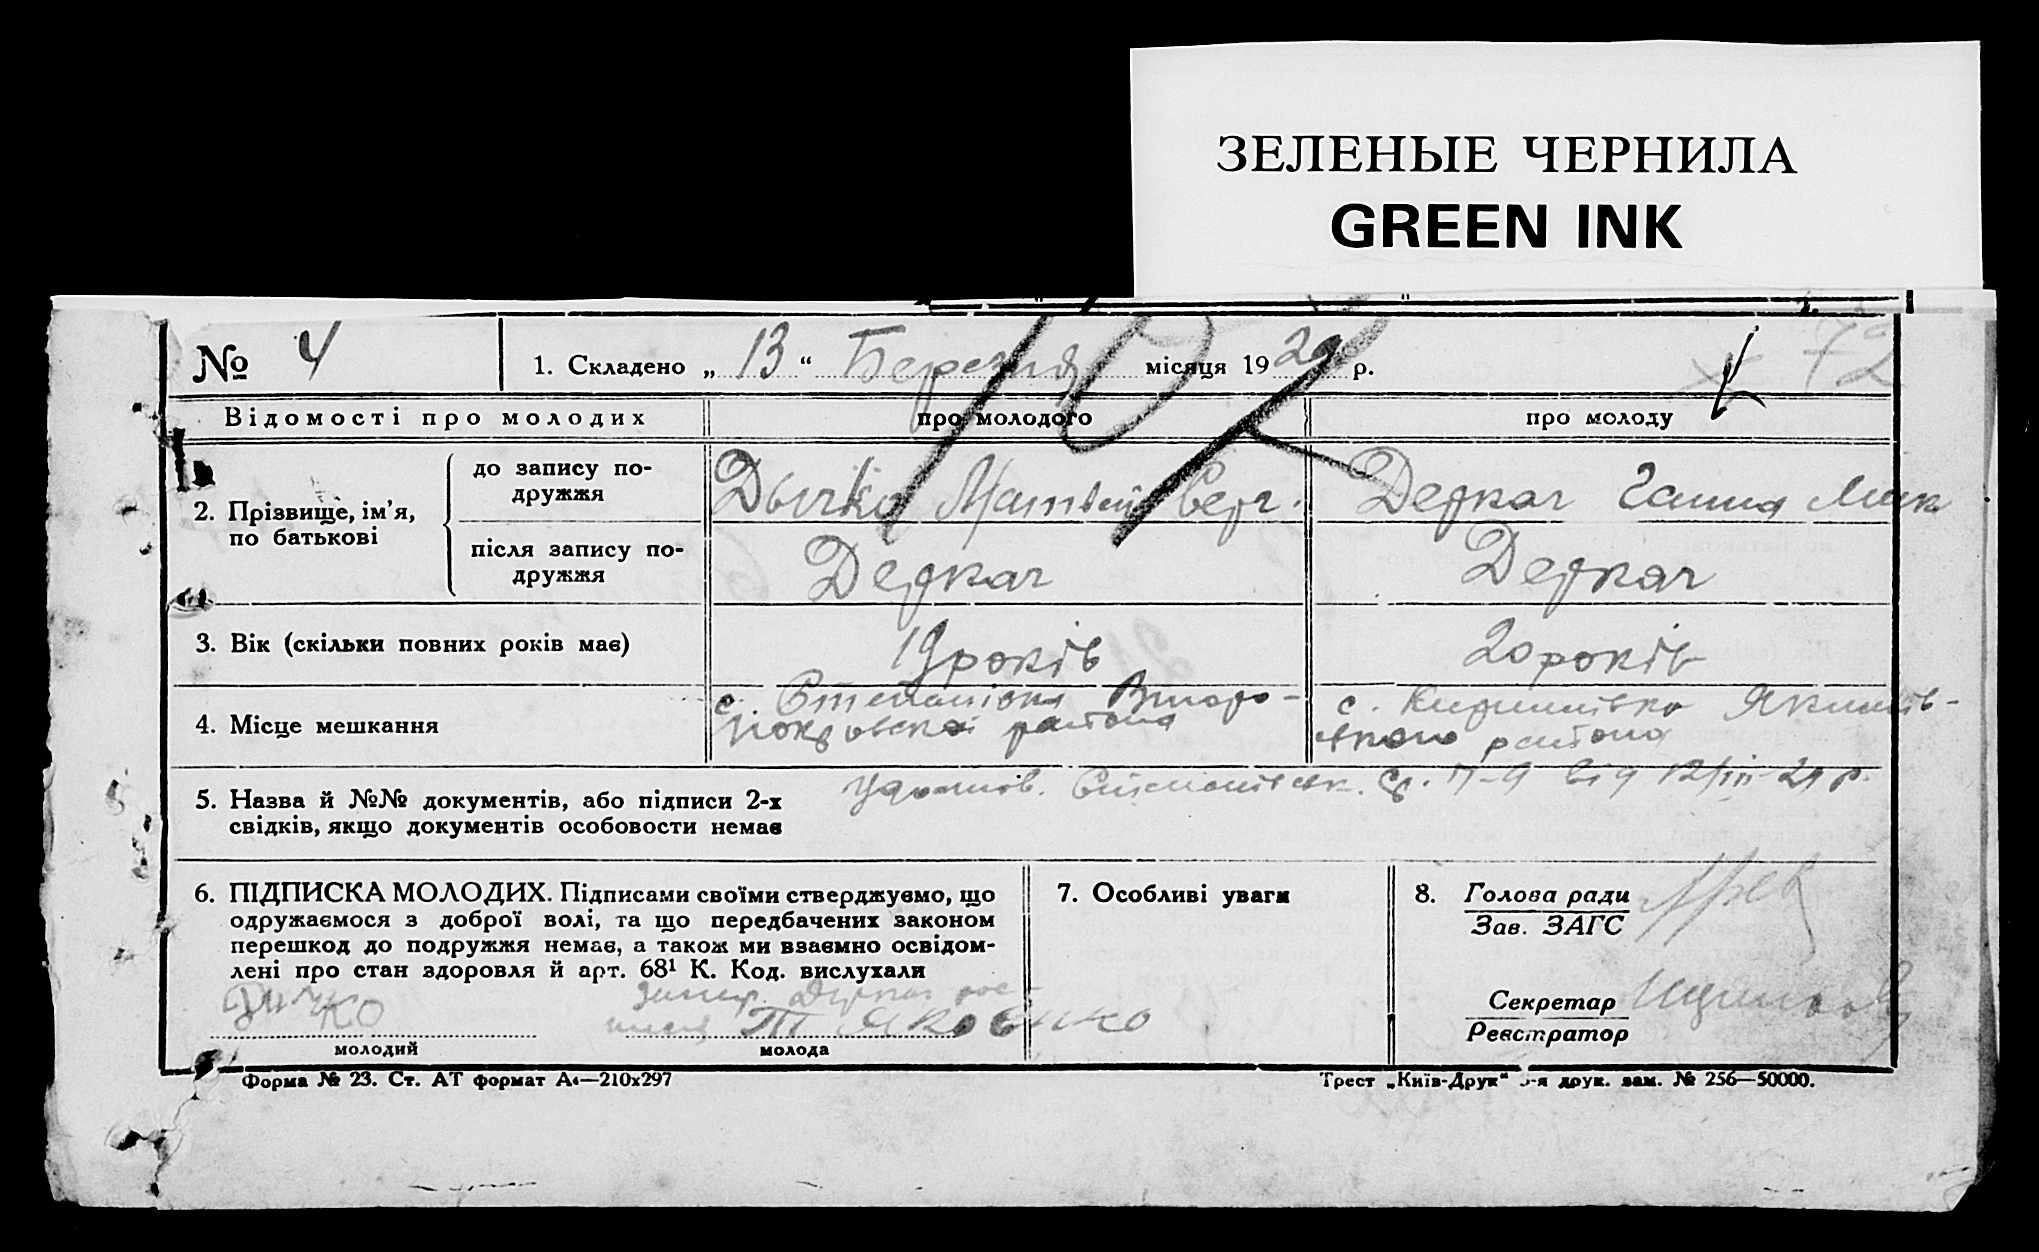 ЗЕЛЕНЫЕ ЧЕРНИЛА
GREEN INK
72
№ 4
1. Складено „ 13 “ Березня місяця 1929 р.
Відомості про молодих
про молодого
про молоду
2. Прізвище, ім'я, по батькові
до запису по-
дружжя
Дычко Матвей Серг.
Деркач Ганна Мик
після запису по-
дружжя
Деркач
Деркач
3. Вік (скільки повних років має)
19 років
20 років
4. Місце мешкання
с. Степанівка Второ-
покровской района
с. Кирилівка Якимів-
ського района
5. Назва й №№ документів, або підписи 2-х
свідків, якщо документів особовости немає
від 12/III-29 р.
6. ПІДПИСКА МОЛОДИХ. Підписами своїми стверджуємо, що
одружаємося з доброї волі, та що передбачених законом
перешкод до подружжя немає, а також ми взаємно освідом-
лені про стан здоровля й арт. 68¹ К. Код. вислухали
Дичко
молодий
Деркач рос-
Яковенко
молода
7. Особливі уваги
8. Голова ради
Зав. ЗАГС
Секретар
Реєстратор
Форма № 23. Ст. АТ формат А4—210х297
Трест „Київ-Друк“ -я друк. зам. № 256—50000.